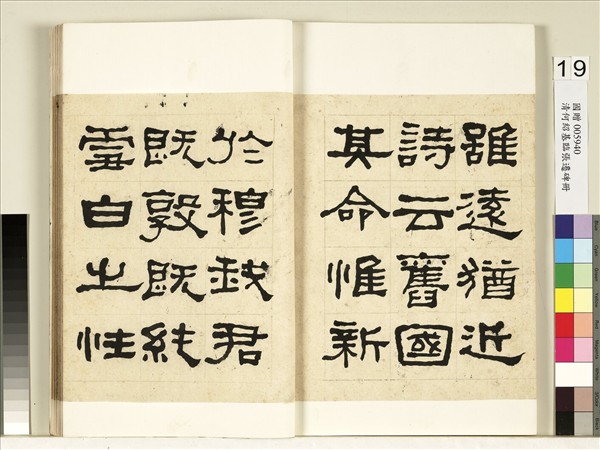 雖遠猶近
詩云舊國
其命惟新
於穆我君
既敦既純
雪白之性
19
國贈 005940
清何紹基臨張遷碑冊